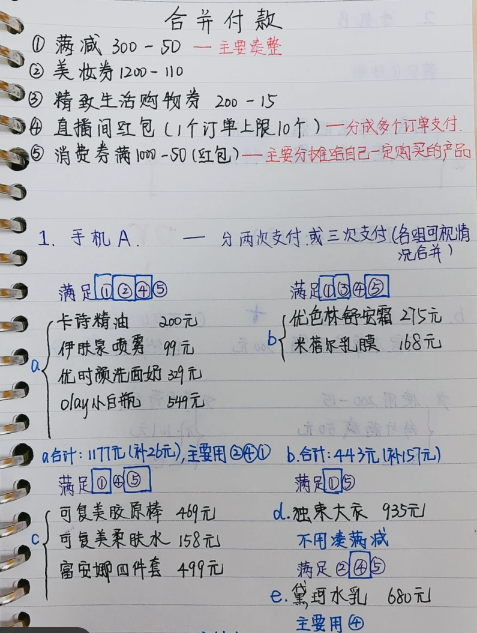 合并付款
① 满减 300-50 — 主要凑整
② 美妆券1200-110
③ 精致生活购物券 200-15
④ 直播间红包(1个订单上限10个) — 分成多个订单支付.
⑤ 消费券满1000-50(红包) — 主要分摊给自己一定购买的产品
1. 手机A. — 分两次支付.或三次支付(各组可视情况合并)
满足①②④⑤
a
卡诗精油 200元
伊肤泉喷雾 99元
优时颜洗面奶 329元
olay小白瓶 549元
满足①③④⑤
b
优色林舒安霜 275元
米蓓尔乳膜 168元
a合计: 1177元(补26元),主要用②④①
b.合计: 443元(补157元)
满足①④⑤
c
可复美胶原棒 469元
可复美柔肤水 158元
富安娜四件套 499元
满足①⑤
d.独束大衣 935元
不用凑满减
满足②④⑤
e.黛珂水乳 680元
主要用④